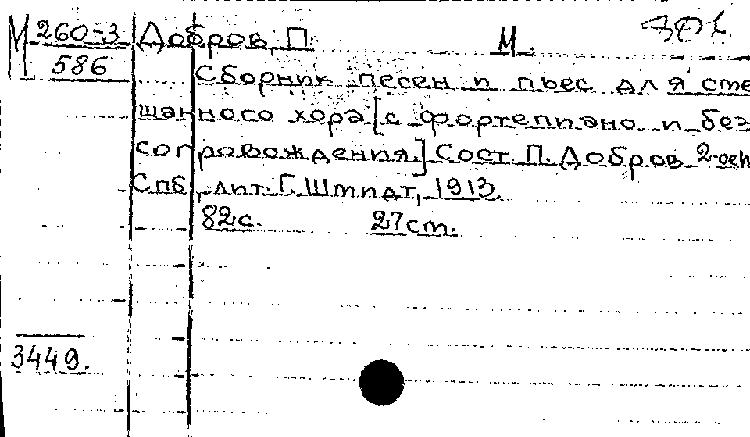 М 260-3 Добров, П. М.
586 Сборник песен и пьес для сме
шанного хора [с фортепиано и без
сопровождения.] Сост. П. Добров 2-оеч
Спб, лит. Г. Шмидт, 1913.
82с. 27см.
3449.